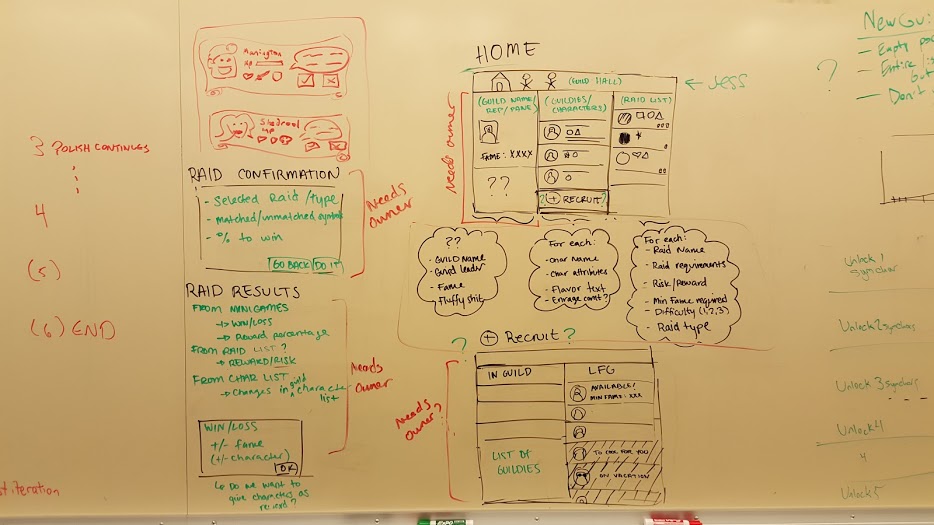 3 POLISH CONTINUES
4
(5)
(6) END
Mannington
HP
HP
RAID CONFIRMATION
- Selected Raid/type
- Matched/unmatched symbols
- % to win
GO BACK
DO IT
Needs
owner
RAID RESULTS
FROM MINIGAMES
→ WIN/LOSS
→ Reward percentage
FROM RAID LIST?
→ REWARD/RISK
FROM CHAR LIST
→ Changes in guild character
list
Needs
owner
WIN/LOSS
+/- fame
(+/- character)
OK
↳ Do we want to
give characters as
reward?
HOME
(GUILD HALL)
← Jess
Needs owner
(GUILD NAME/
REP/FAME)
FAME: XXXX
??
(GUILDIES/
CHARACTERS)
? + RECRUIT?
(RAID LIST)
??
- GUILD NAME
- Guild leader
- Fame
- Fluffy shit
For each:
- Char Name
- Char attributes
- Flavor text
- Enrage comt?
For each:
- Raid Name
- Raid requirements
- Risk/Reward
- Min Fame required
- Difficulty (1,2,3)
- Raid type
? + Recruit?
Needs
owner?
IN GUILD
LIST OF
GUILDIES
LFG
AVAILABLE/
MIN FAME: XXX
TO COOL FOR YOU
ON VACATION
New Gui
- Empty
- Entire
but
- Don't
?
Unlock 1
Unlock 2
Unlock 3
Unlock 4
4
Unlock 5
iteration
EXPO